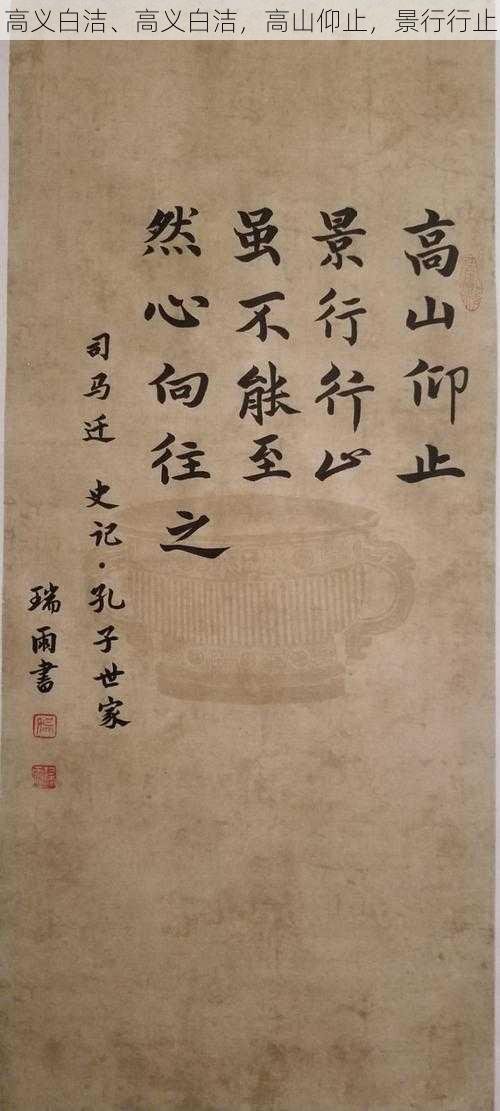 高义白洁、高义白洁，高山仰止，景行行止
高山仰止
景行行止
虽不能至
然心向往之
司马迁 史记·孔子世家
瑞雨書